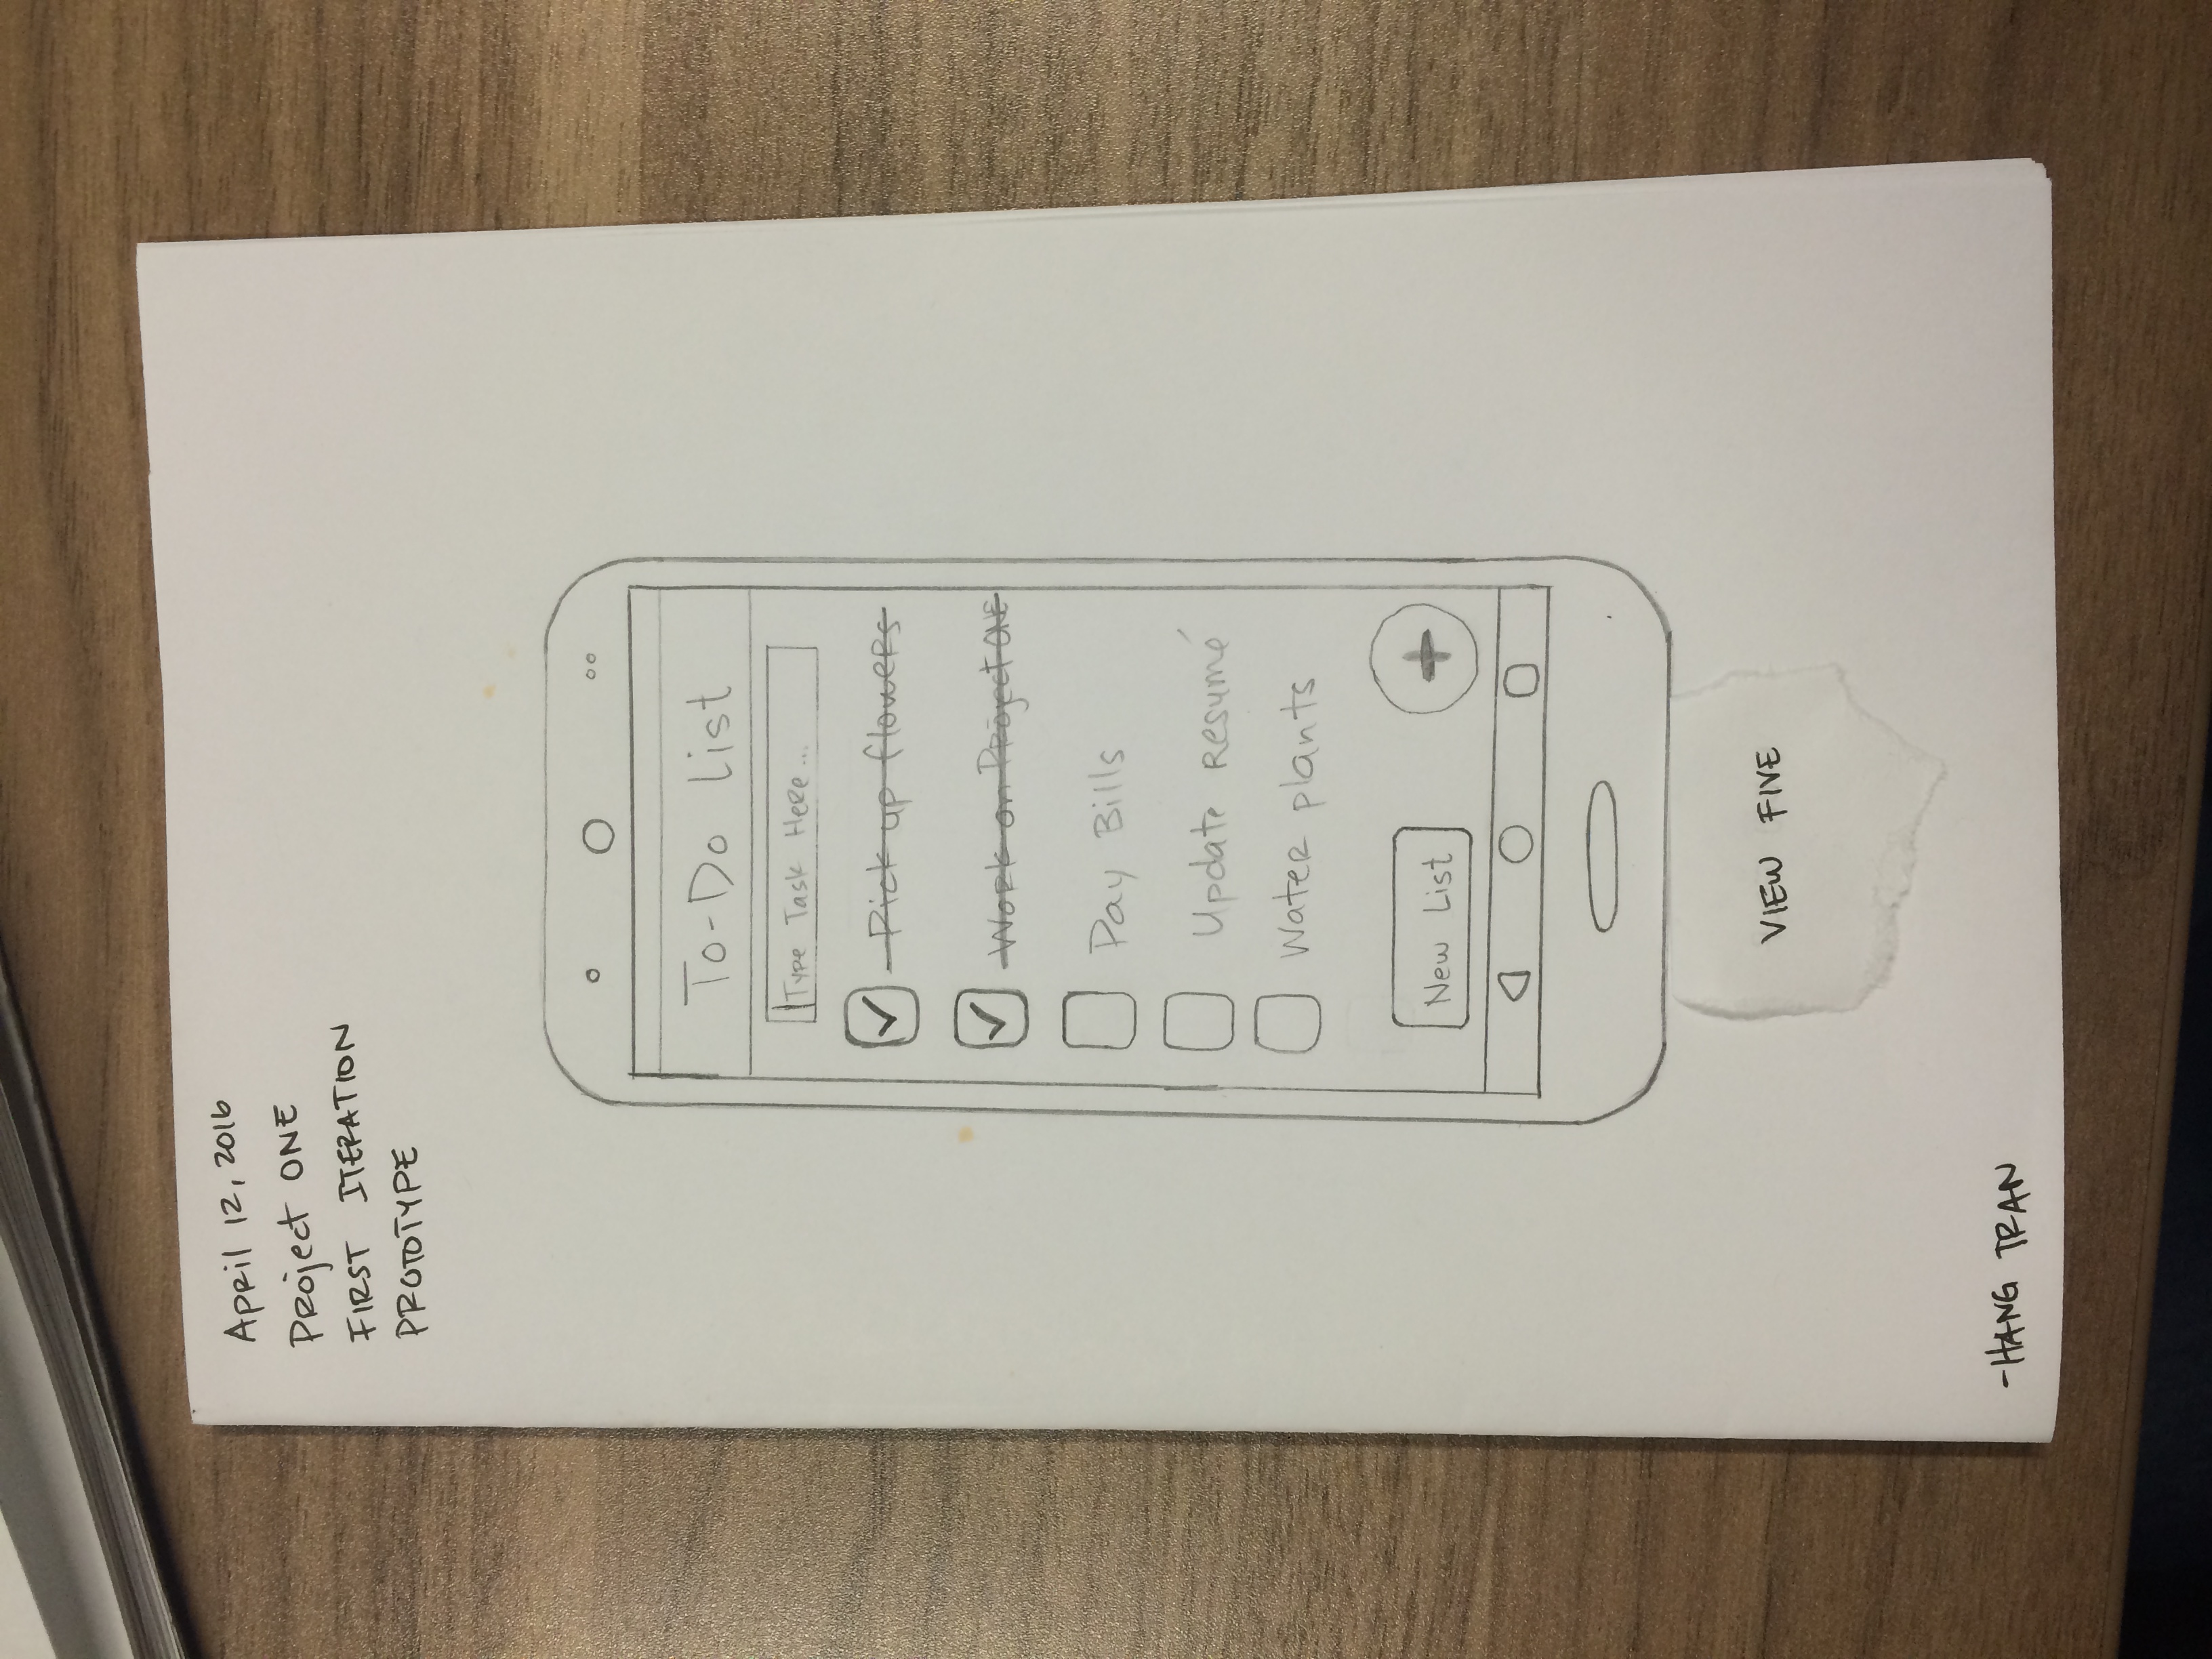 April 12, 2016
Project ONE
FIRST ITERATION
PROTOTYPE
To-Do list
Type Task Here...
Pick up flowers
Work on Project ONE
Pay Bills
Update resumé
Water plants
New List
+
VIEW FIVE
-HANG TRAN